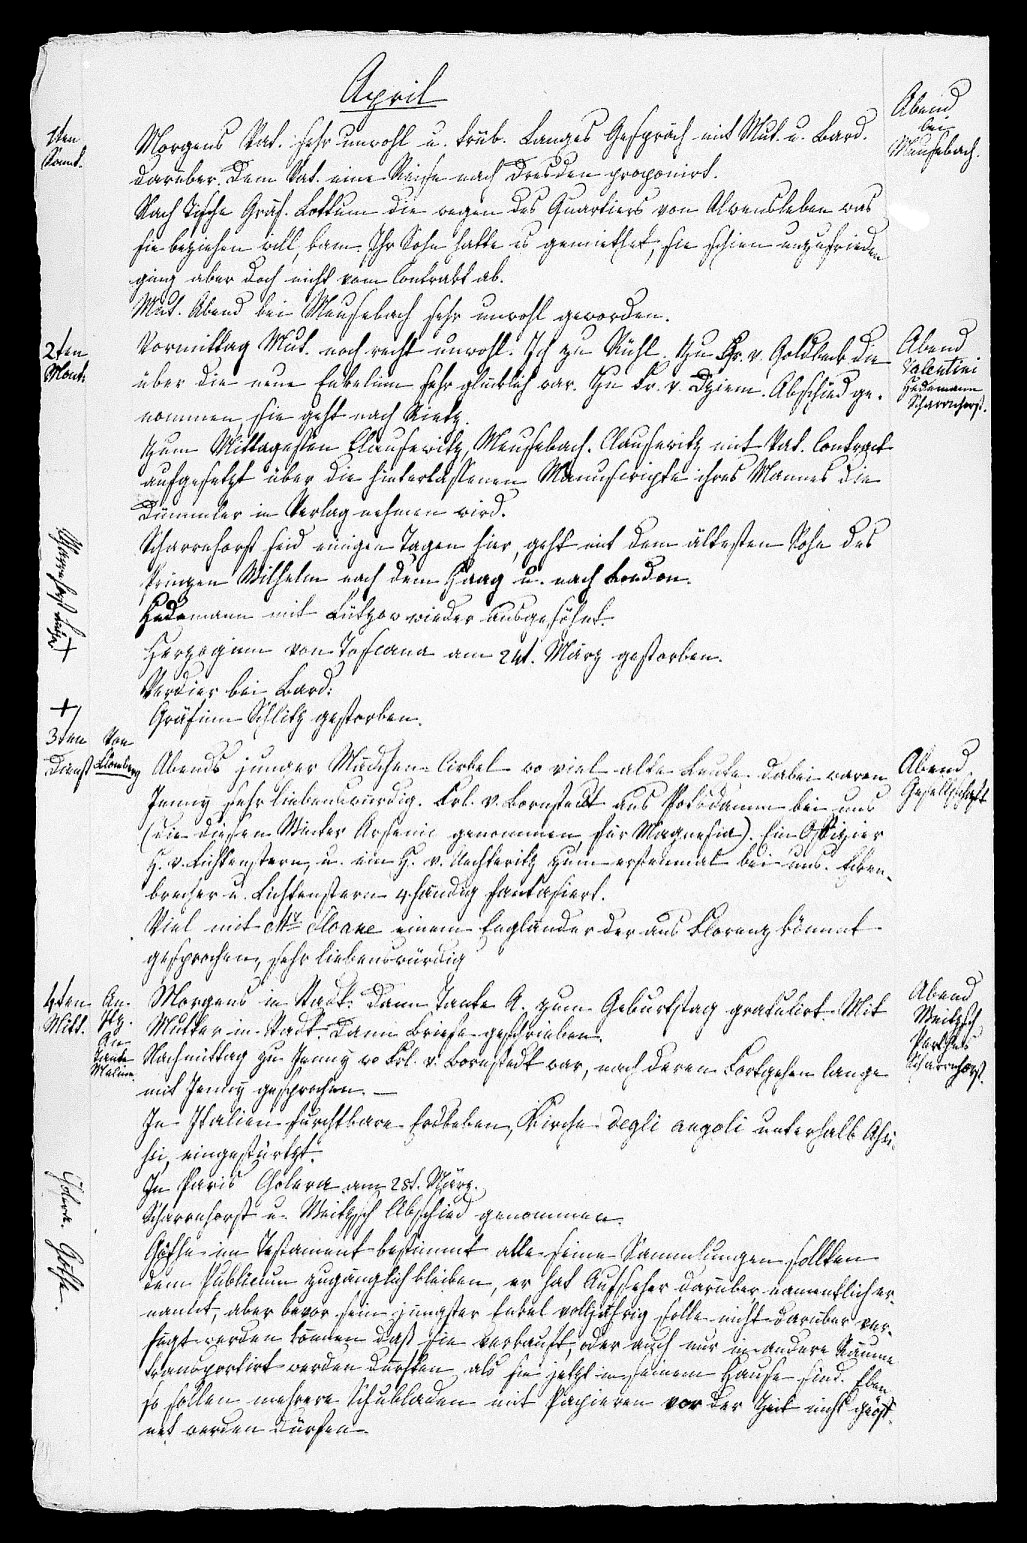 April
1ten
Sonnt.
Abend
bei
Meusebach.
Morgens Vat. sehr unwohl u. trüb. Langes Gespräch mit Mut. u. Bard.
darüber. Dem Vat. eine Reise nach Dresden proponirt.
Nach Tische Gräf. Lottum die wegen des Quartiers von Alvensleben was
sie beziehen will, kam, Ihr Sohn hatte es gemiethet, sie schien unzufrieden
ging aber doch nicht vom Contrakt ab.
Mut. Abend bei Meusebach sehr unwohl geworden.
2ten
Mont.
Abend
Valentini
Hedemann
Scharnhorst.
Vormittag Mut. noch recht unwohl. Ich zu Rühl. Zu Fr. v. Goldbeck die
über die neue Enkelinn sehr glücklich war. Zu Fr. v. Dziem. Abschied ge-
nommen, sie geht nach Rietz.
Zum Mittagessen Clausewitz, Meusebach. Clausewitz mit Vat. Contract
aufgesetzt über die hinterlassenen Manuscripte ihres Mannes die
Dümmler in Verlag nehmen wird.
Scharnhorst seid einigen Tagen hier, geht mit dem ältesten Sohn des
Prinzen Wilhelm nach dem Haag u. nach London.
Hedemann mit Lützow wieder ausgesöhnt.
Herzoginn von Toscana am 24t. März gestorben.
Verdier bei Bard:
Gräfinn Schlitz gestorben.
3ten
Dienst
Von
Blomberg
Abend
Gesellschaft
Abends junger Mädchen-Cirkel wo viel alte Leute dabei waren
Jenny sehr liebenswürdig. Frl. v. Bornstedt aus Potsdamm bei uns
(die diesen Winter Arsenic genommen, für Magnesia). Ein Offizier
H. v. Lichtenstern, u. ein H. v. Aechteritz zum erstenmal bei uns. Eken-
brecher u. Lichtenstern 4händig fantasiert.
Viel mit Mr. Sloane einem Engländer der aus Florenz kömmt
gesprochen, sehr liebenswürdig
4ten
Mitt.
An
Itz.
An
Tante
Malien.
Abend
Weitzsch
Parthey
Scharnhorst.
Morgens in Stadt. Dann Tante A. zum Geburtstag gratulirt. Mit
Mutter in Stadt. Dann Briefe geschrieben.
Nachmittag zu Jenny wo Frl. v. Bornstedt war, nach deren Fortgehen lange
mit Jenny gesprochen. —
In Italien furchtbare Erdbeben, Kirche degli angoli unterhalb Assi-
si, eingestürtzt.
In Paris Colera am 28t. März.
Scharnhorst u. Weitzsch Abschied genommen.
Colera. Göthe.
Göthe im Testament bestimmt alle seine Sammlungen sollten
dem Publicum zugänglich bleiben, er hat Aufseher darüber namentlich er-
nannt, aber bevor sein jüngster Enkel volljährig solle nicht darüber ver-
fügt werden können daß sie verkauft, oder auch nur in andere Räume
transportirt werden dürften, als sie jetzt in seinem Hause sind. Eben
so sollen mehrere Schubladen mit Papieren vor der Zeit nicht geöff-
net werden dürfen